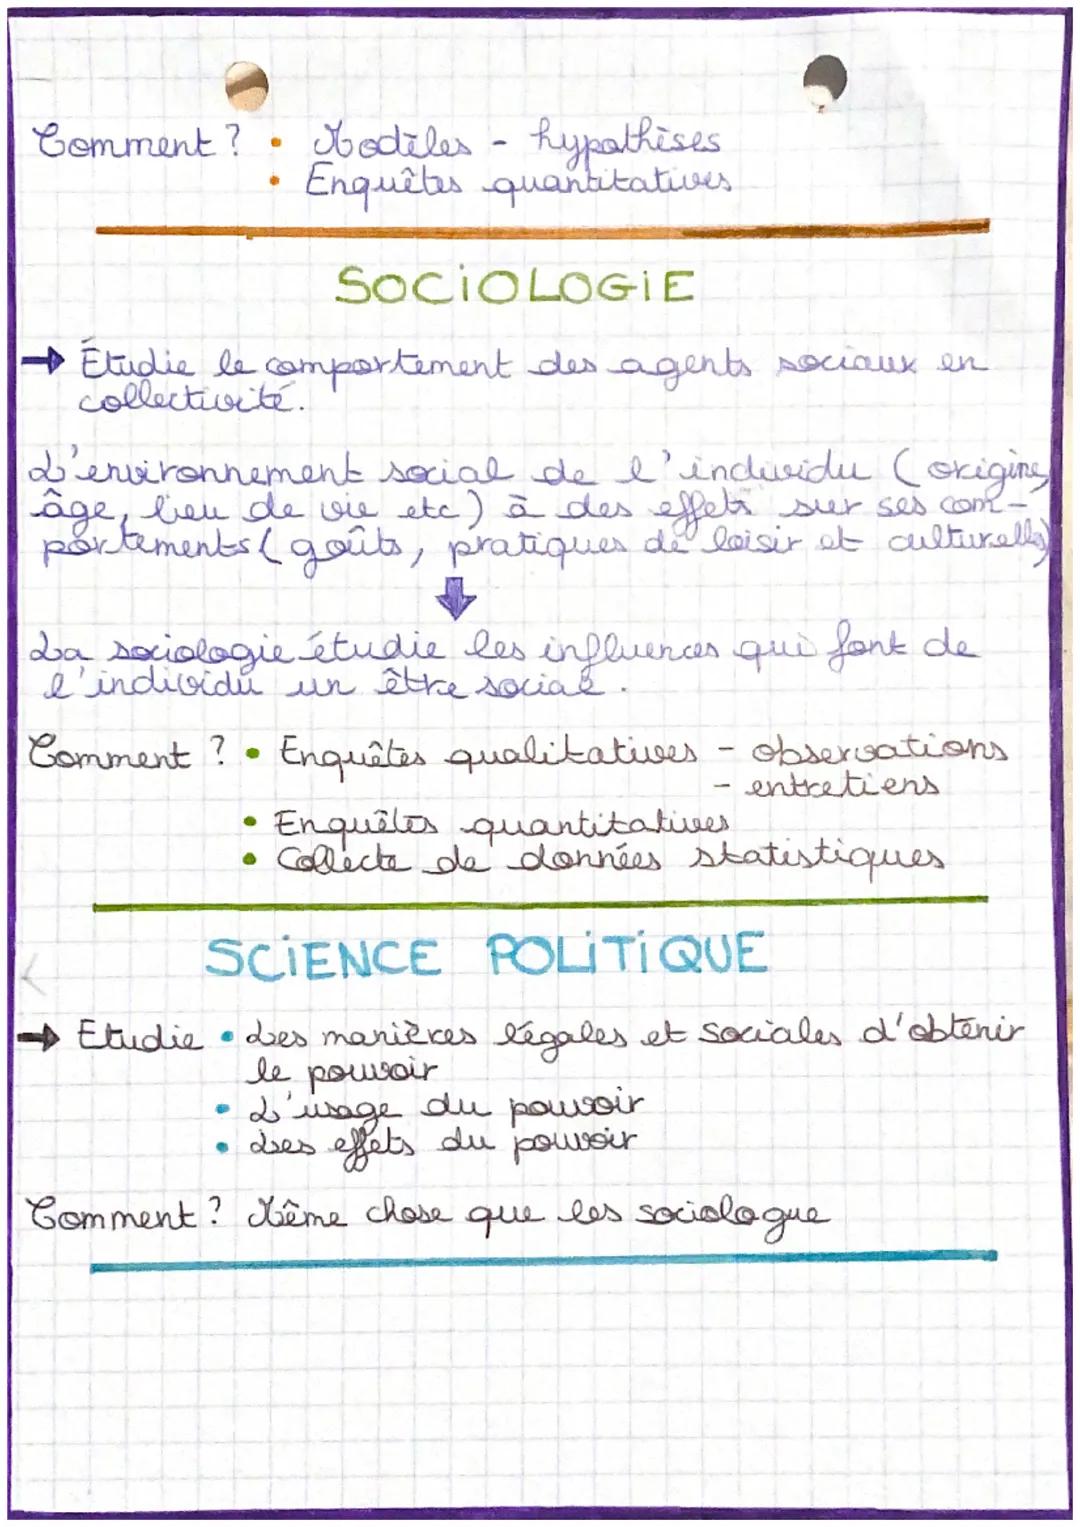 Comment ? • Modèles - hypothèses
• Enquêtes quantitatives
SOCIOLOGIE
→ Étudie le comportement des agents sociaux en
collectivité.
L'environnement social de l'individu (origine,
âge, lieu de vie etc) à des effets sur ses com-
portements (goûts, pratiques de loisir et culturelles)
La sociologie étudie les influences qui font de
l'individu un être social.
Comment ? • Enquêtes qualitatives - observations
- entretiens
• Enquêtes quantitatives
• Collecte de données statistiques
SCIENCE POLITIQUE
→ Etudie • Les manières légales et sociales d'obtenir
le pouvoir
• L'usage du pouvoir
• Les effets du pouvoir
Comment ? Même chose que les sociologue